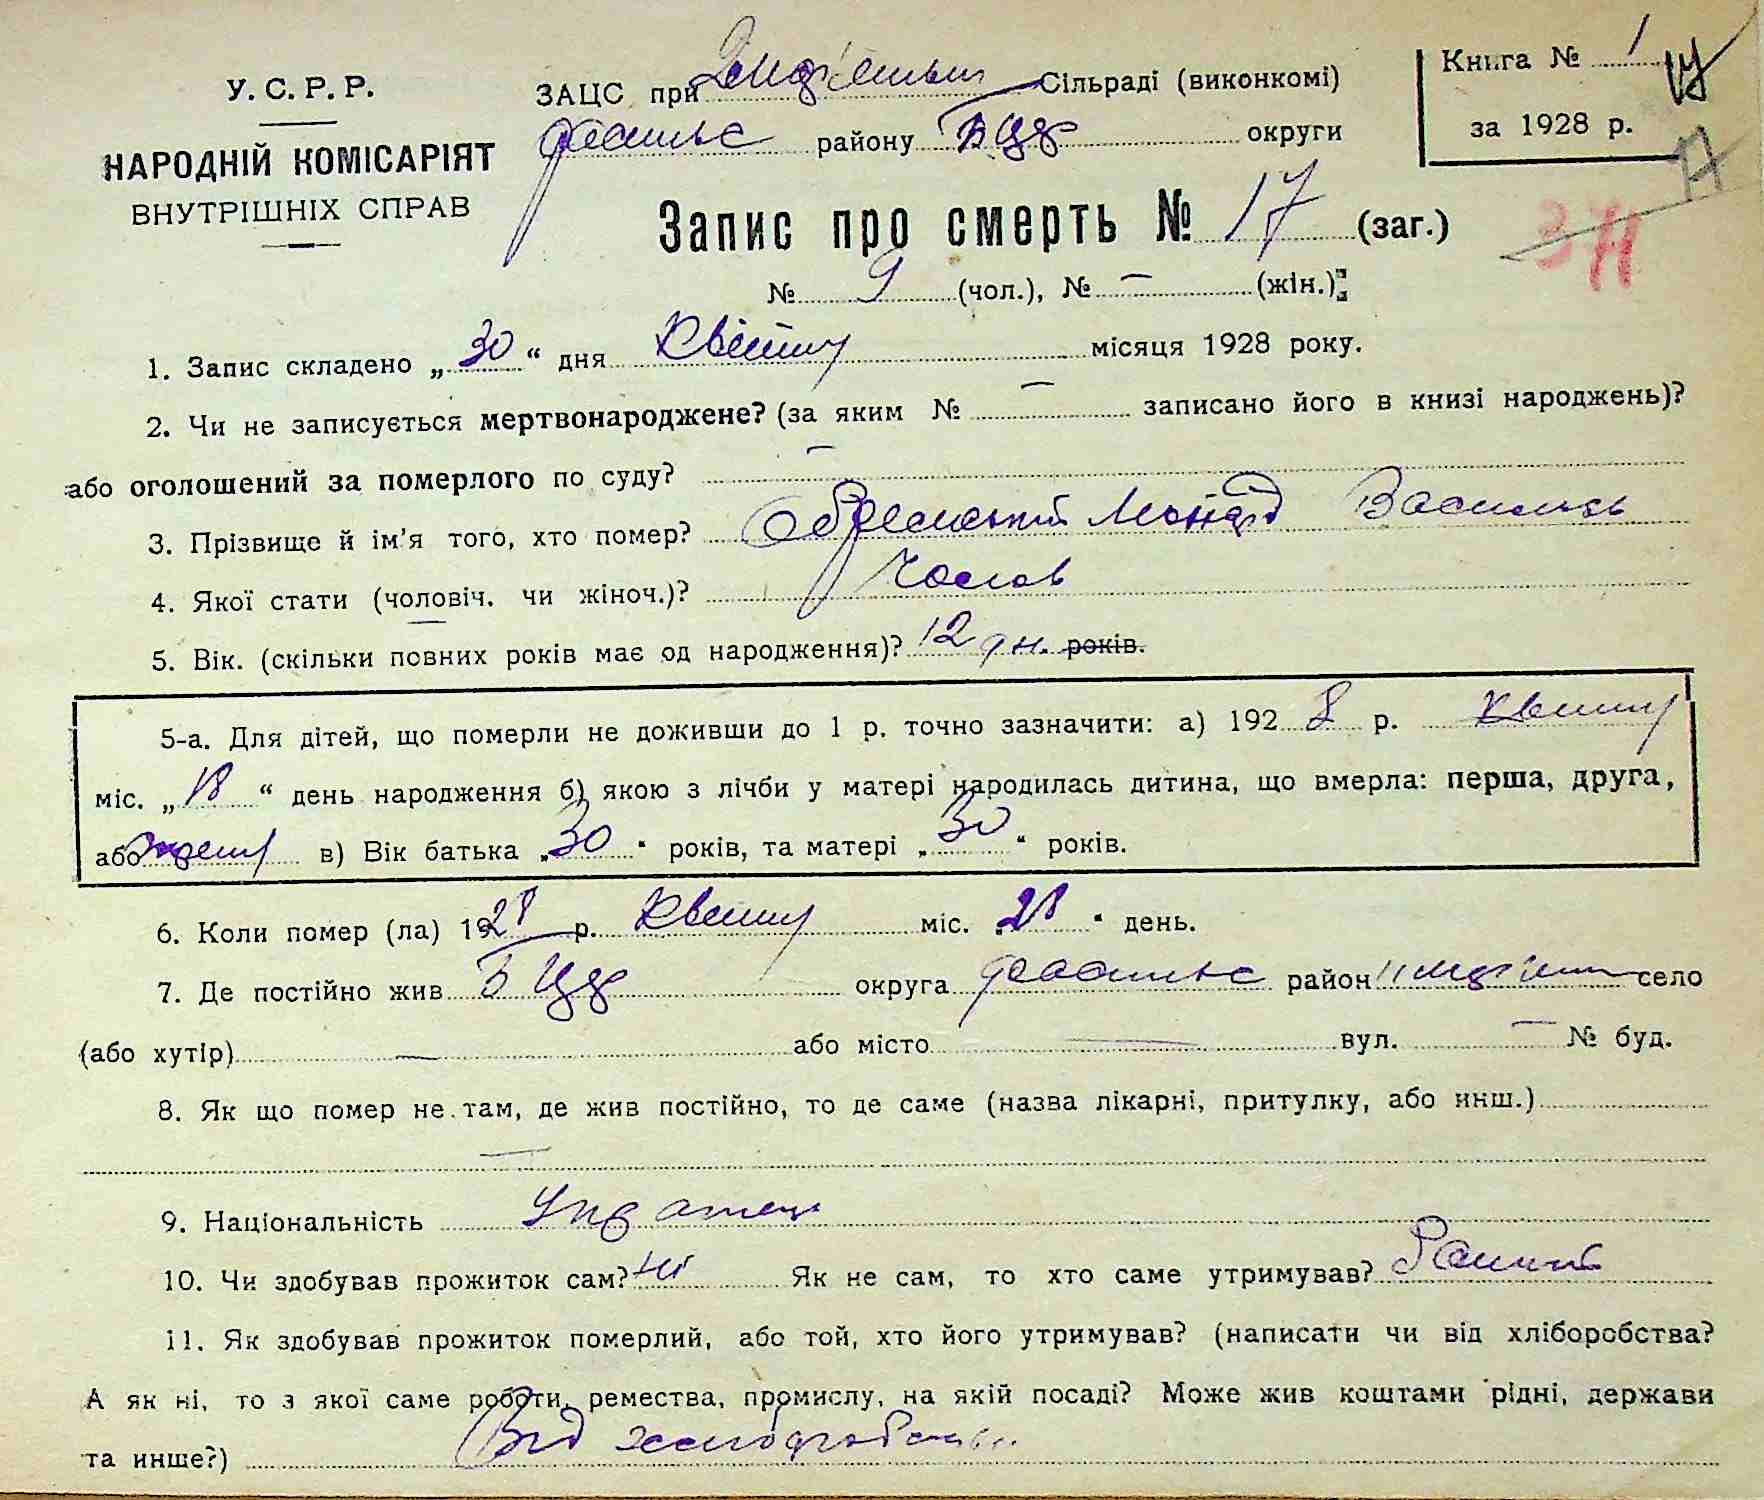 У. С. Р. Р.
НАРОДНІЙ КОМІСАРІЯТ
ВНУТРІШНІХ СПРАВ
ЗАЦС при Сільраді (виконкомі)
району БЦ округи
Книга № 1
за 1928 р.
17
Запис про смерть № 17 (заг.)
№ 9 (чол.), № — (жін.)
1. Запис складено „30“ дня Квітня місяця 1928 року.
2. Чи не записується мертвонароджене? (за яким № — записано його в книзі народжень)?
або оголошений за померлого по суду? —
3. Прізвище й ім'я того, хто помер?
4. Якої стати (чоловіч. чи жіноч.)? Чолов
5. Вік. (скільки повних років має од народження)? 12 дн. років.
5-а. Для дітей, що померли не доживши до 1 р. точно зазначити: а) 1928 р. Квітня
міс. „18“ день народження б) якою з лічби у матері народилась дитина, що вмерла: перша, друга,
або в) Вік батька „30“ років, та матері „30“ років.
6. Коли помер (ла) 1928 р. Квітня міс. „28“ день.
7. Де постійно жив БЦ округа район село
(або хутір) — або місто — вул. — № буд.
8. Як що помер не там, де жив постійно, то де саме (назва лікарні, притулку, або инш.)
—
9. Національність
10. Чи здобував прожиток сам? ні Як не сам, то хто саме утримував?
11. Як здобував прожиток померлий, або той, хто його утримував? (написати чи від хліборобства?
А як ні, то з якої саме роботи, ремества, промислу, на якій посаді? Може жив коштами рідні, держави
та инше?) Від хліборобства